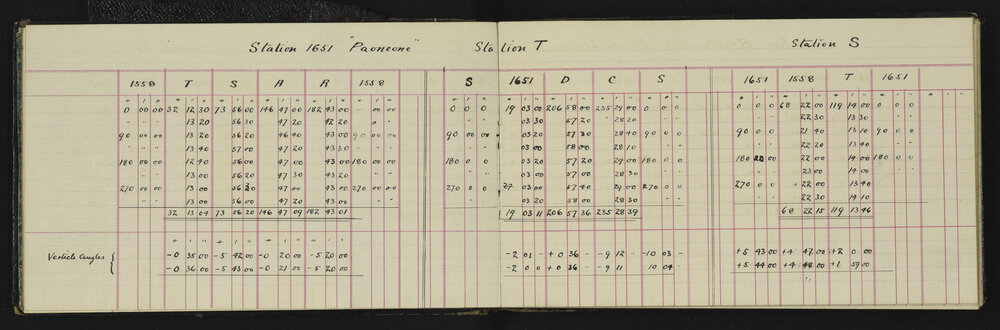 Station 1651 "Paoneone" Station T Station S
1558 T S A R 1558 S 1651 D C S 1651 1558 T 1651
° ' " ° ' " ° ' " ° ' " ° ' " ° ' " ° ' " ° ' " ° ' " ° ' " ° ' " ° ' " ° ' " ° ' " ° ' "
0 00 00 32 12 30 73 56 00 146 47 00 182 43 00 - 00 00 0 0 0 19 03 00 206 58 00 235 29 00 0 0 0 0 0 0 68 22 00 119 14 00 0 0 0
13 20 56 30 47 20 42 20 03 30 57 20 28 20 22 30 13 30
90 00 00 13 20 56 20 46 40 43 00 90 00 00 90 00 00 03 20 57 30 28 40 90 0 0 90 0 0 21 40 13 10 90 0 0
13 40 57 00 47 20 43 30 03 00 58 00 28 10 22 20 13 40
180 00 00 12 40 56 00 47 00 43 00 180 00 00 180 0 0 03 20 57 20 29 00 180 0 0 180 00 22 00 14 00 180 0 0
13 00 56 20 47 30 43 20 03 00 58 00 28 30 23 00 14 00
270 00 00 13 00 56 20 47 00 43 00 270 00 00 270 0 0 03 00 57 40 29 00 270 0 0 270 0 0 22 00 13 40
13 00 56 00 47 20 43 00 03 20 58 00 28 30 22 30 14 10
32 13 04 73 56 20 146 47 09 182 43 01 19 03 11 206 57 36 235 28 39 68 22 15 119 13 46
Verticle angles { -0 35 00 -5 42 00 -0 20 00 -5 20 00 -2 01 - +0 36 - -9 12 -10 03 - +5 43 00 +4 47 00 +2 0 00
-0 36 00 -5 43 00 -0 21 00 -5 20 00 -2 0 0 +0 36 - -9 11 10 04 - +5 44 00 +4 48 00 +1 59 00